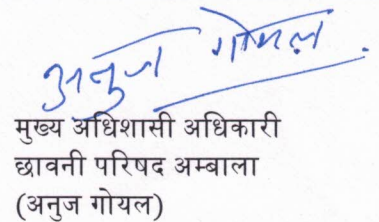 अनुज गोयल
मुख्य अधिशासी अधिकारी
छावनी परिषद अम्बाला
(अनुज गोयल)